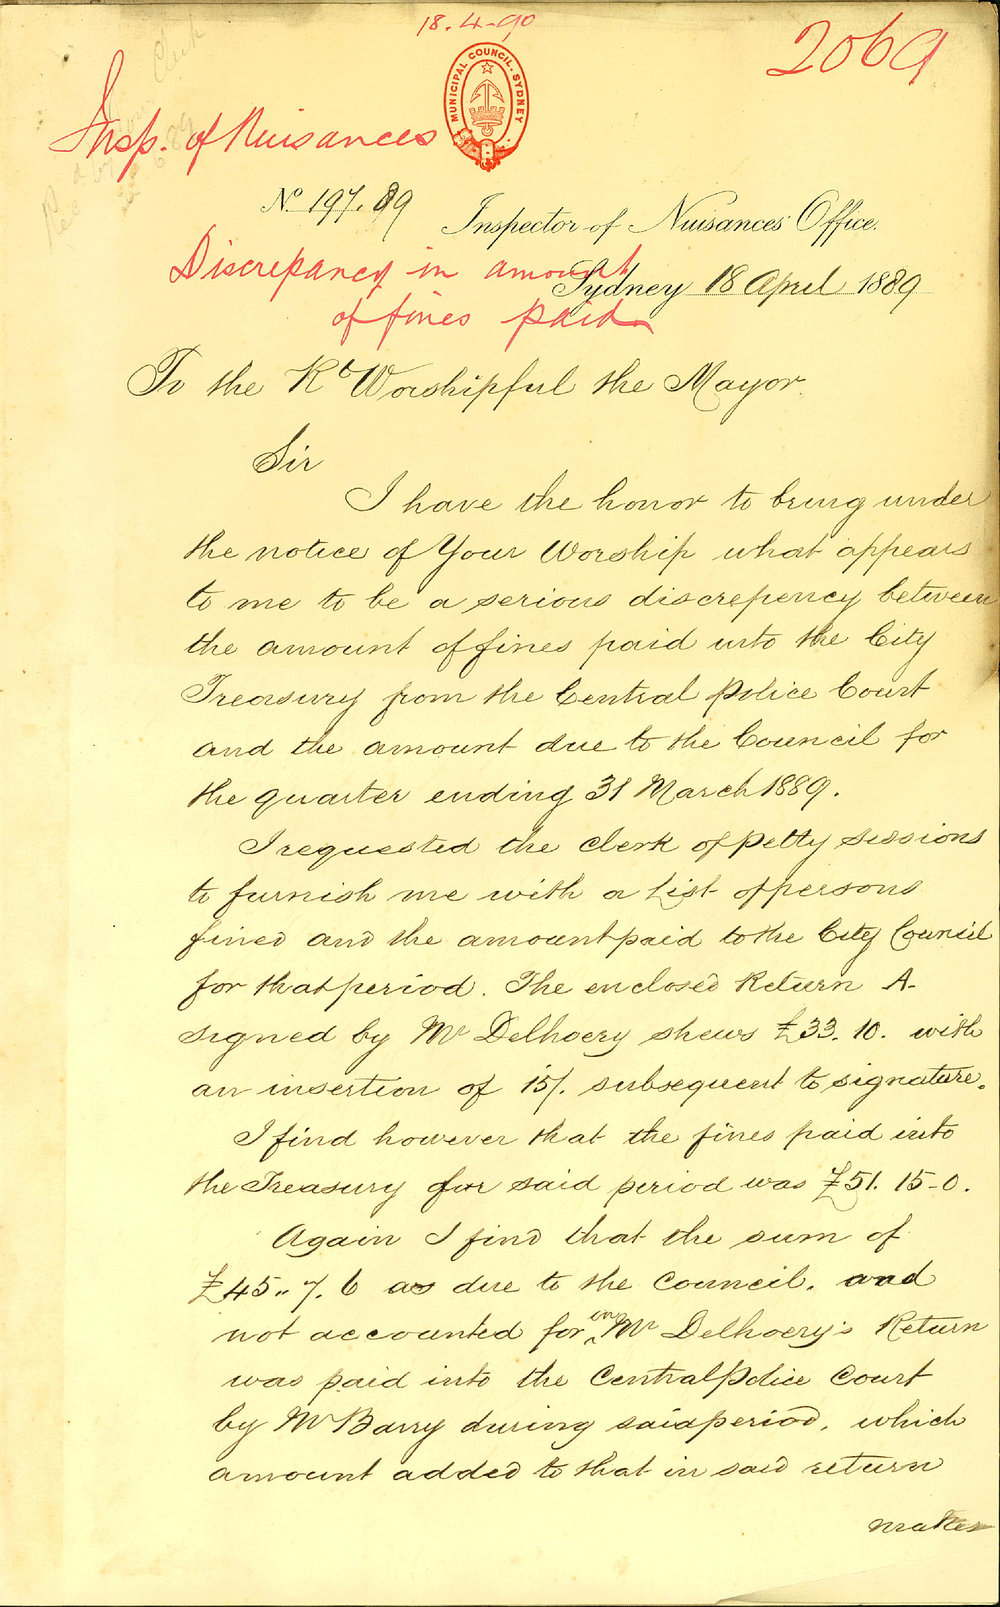 18.4-90
2069
MUNICIPAL COUNCIL. SYDNEY
Insp. of Nuisances
No. 197. 89
Inspector of Nuisances' Office.
Discrepancy in amount
Sydney 18 April 1889
of fines paid
To the Rt Worshipful the Mayor.
Sir
I have the honor to bring under
the notice of Your Worship what appears
to me to be a serious discrepency between
the amount of fines paid into the City
Treasury from the Central Police Court
and the amount due to the Council for
the quarter ending 31 March 1889.
I requested the Clerk of Petty Sessions
to furnish me with a List of persons
fined and the amount paid to the City Council
for that period. The enclosed Return A-
signed by Mr Delhoery shews £33. 10. with
an insertion of 15/. subsequent to signature.
I find however that the fines paid into
the Treasury for said period was £51. 15-0.
Again I find that the sum of
£45.. 7. 6 as due to the Council. and
not accounted for on Mr Delhoery's Return
was paid into the Central Police Court
by Mr Barry during said period, which
amount added to that in said return
makes